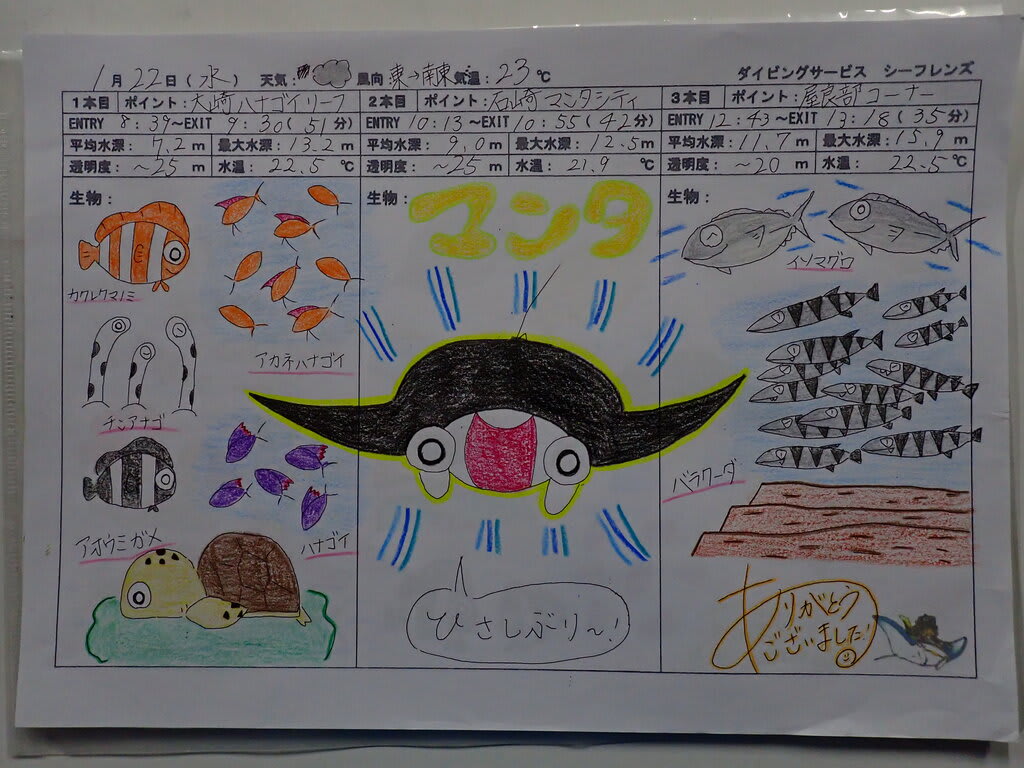 1月22日(水) 天気: 風向 東→南東 気温: 23℃ ダイビングサービス シーフレンズ
1本目 ポイント:大崎ハナゴイリーフ
ENTRY 8:39~EXIT 9:30(51分)
平均水深: 7.2m 最大水深: 13.2m
透明度: ~25m 水温: 22.5℃
生物:
カクレクマノミ
アカネハナゴイ
チンアナゴ
アオウミガメ
ハナゴイ
2本目 ポイント:石崎マンタシティ
ENTRY 10:13~EXIT 10:55(42分)
平均水深: 9.0m 最大水深: 12.5m
透明度: ~25m 水温: 21.9℃
生物:
マンタ
ひさしぶり〜!
3本目 ポイント:屋良部コーナー
ENTRY 12:43~EXIT 13:18(35分)
平均水深: 11.7m 最大水深: 15.9m
透明度: ~20m 水温: 22.5℃
生物:
イソマグロ
バラクーダ
ありがとう
ございました!